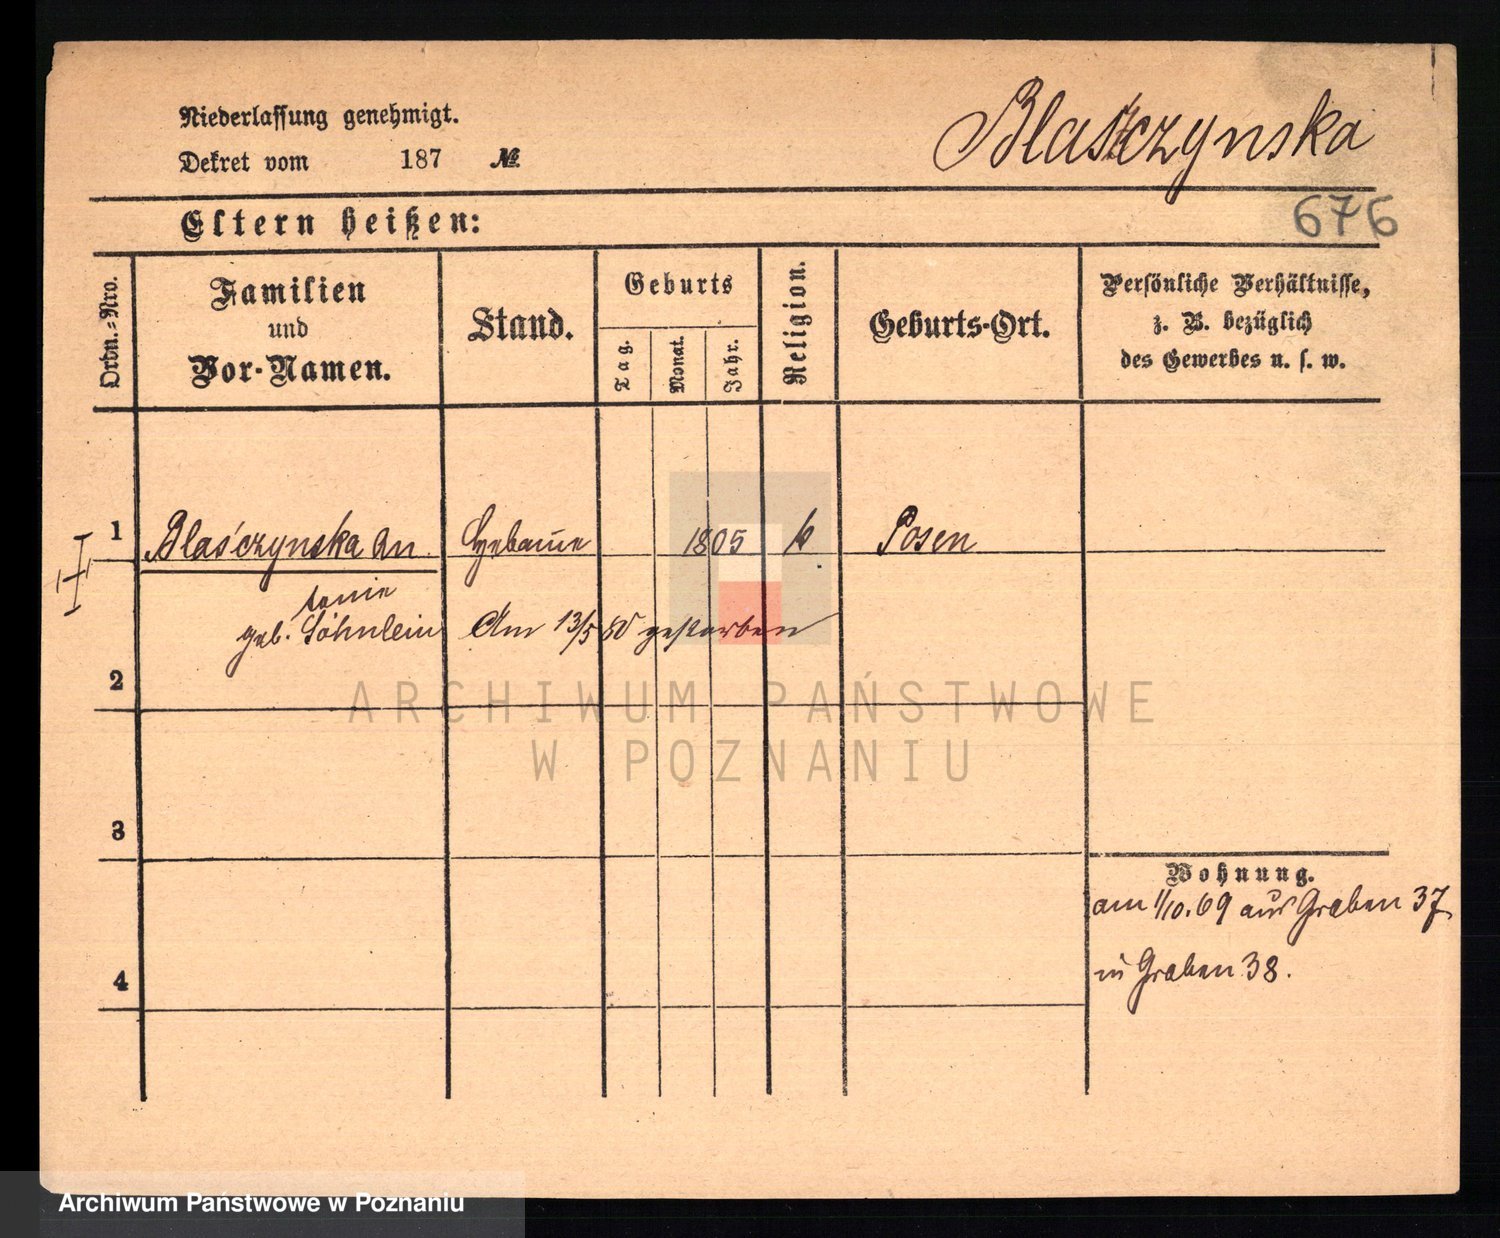 Niederlassung genehmigt.
Blaszczynska
Dekret vom 187 №
Eltern heißen:
676
Ordn.-Nro.
Familien
und
Vor-Namen.
Stand.
Geburts
Tag.
Monat.
Jahr.
Religion.
Geburts-Ort.
Persönliche Verhältnisse,
z. B. bezüglich
des Gewerbes u. s. w.
1 Blaśczynska An 1805 k Posen
tonie
geb. Söhnlein Am 13/5 80 gestorben
2
ARCHIWUM PAŃSTWOWE
W POZNANIU
3
Wohnung.
am 1/10.69 aus Graben 37
in Graben 38.
4
Archiwum Państwowe w Poznaniu